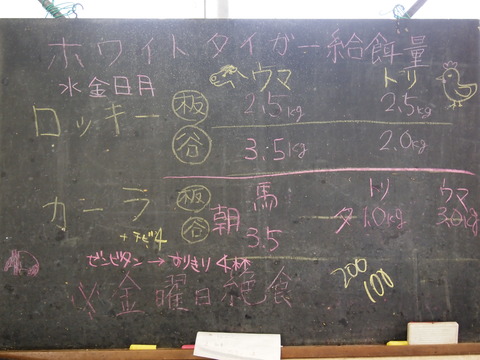 ホワイトタイガー給餌量
水金日月
ウマ トリ
ロッキー 板 2.5kg 2.5kg
谷 3.5kg 2.0kg
カーラ 板 朝 馬 トリ ウマ
谷 3.5 夕 1.0kg 3.0kg
ゼンピタン→すりきり4杯
200
100
※金曜日絶食